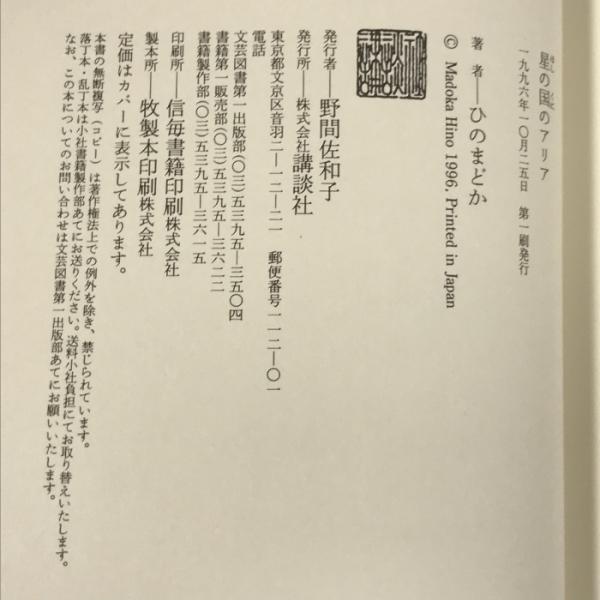 星の国のアリア
一九九六年一〇月二五日　第一刷発行
著者―ひのまどか
© Madoka Hino 1996, Printed in Japan
発行者―野間佐和子
発行所―株式会社講談社
東京都文京区音羽二―一二―二一　郵便番号一一二―〇一
電話
文芸図書第一出版部(〇三)五三九五―三五〇四
書籍第一販売部(〇三)五三九五―三六二二
書籍製作部(〇三)五三九五―三六一五
印刷所―信毎書籍印刷株式会社
製本所―牧製本印刷株式会社
定価はカバーに表示してあります。
本書の無断複写(コピー)は著作権法上での例外を除き、禁じられています。
落丁本・乱丁本は小社書籍製作部あてにお送りください。送料小社負担にてお取り替えいたします。
なお、この本についてのお問い合わせは文芸図書第一出版部あてにお願いいたします。